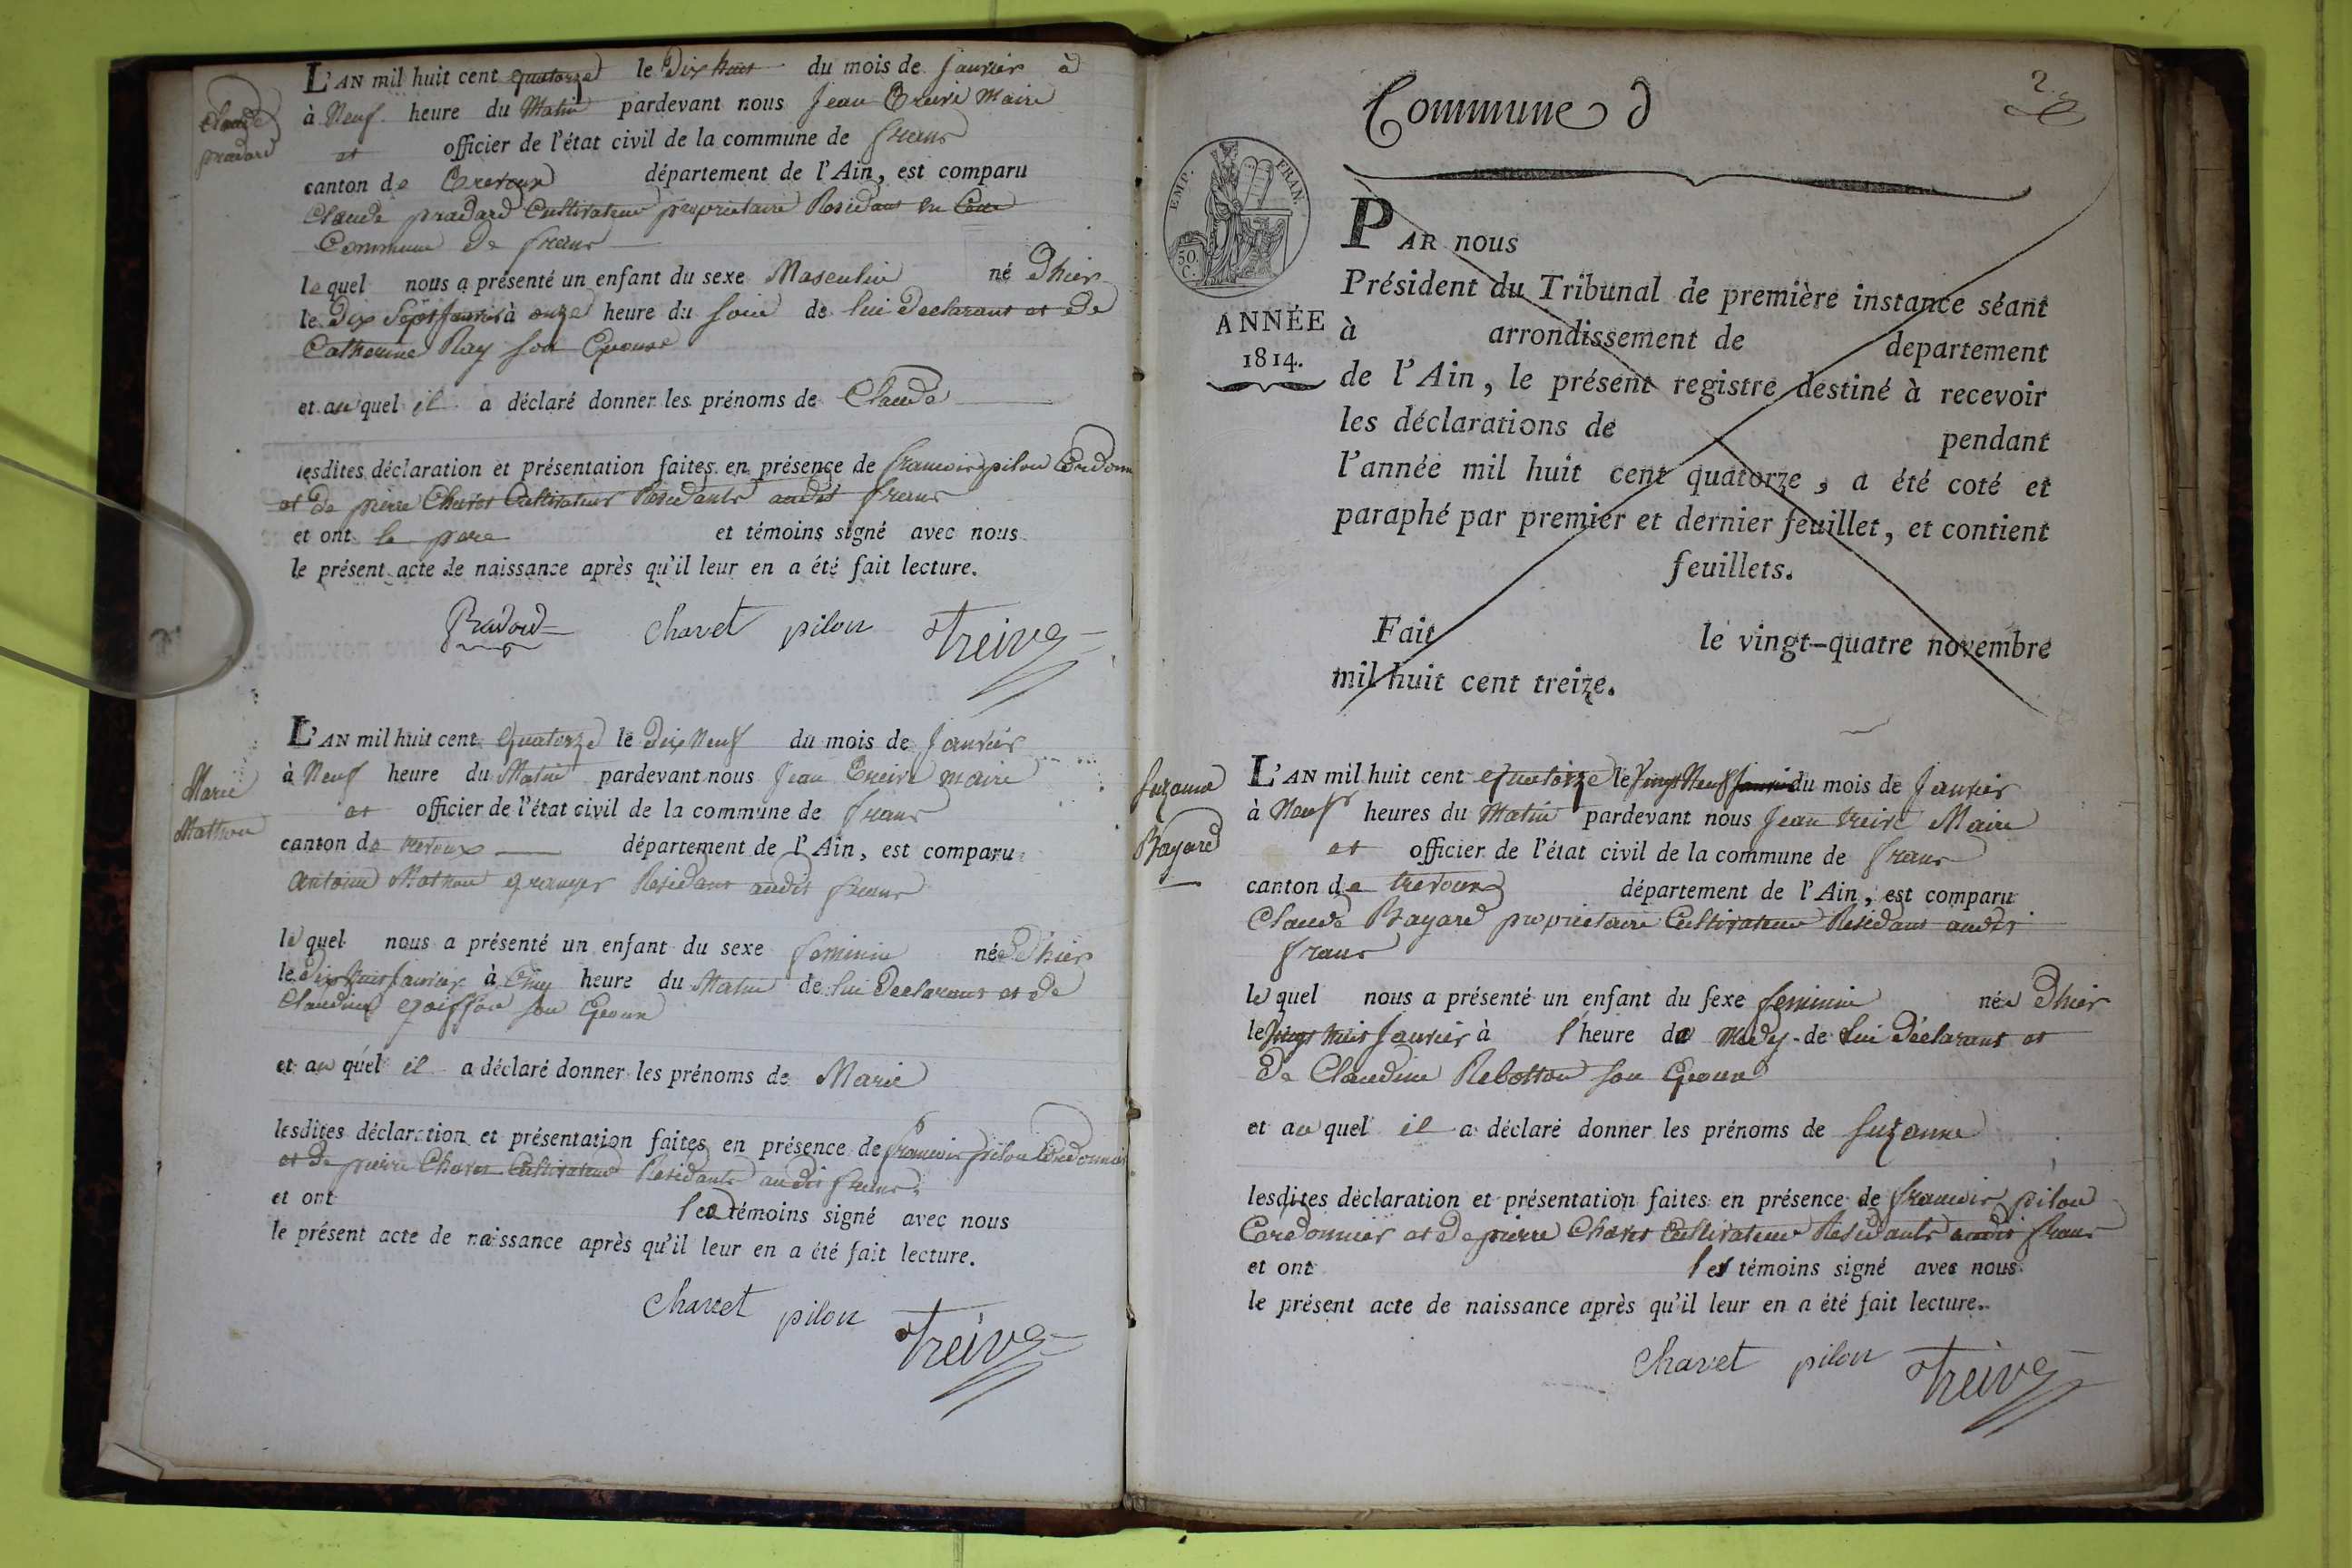 Claude
pradard
L'AN mil huit cent quatorze le Dix huit du mois de Janvier à
à Neuf heure du Matin pardevant nous Jean Treive Maire
et officier de l'état civil de la commune de frans
canton de Trevoux département de l'Ain, est comparu
Claude pradard Cultivateur proprietaire Residant en Cette
Commune de frans
lequel nous a présenté un enfant du sexe Masculin né Dhier
le Dix Sept Janvier à onze heure du soir de lui Declarant et De
Catherine Ray son Epouse
et au quel il a déclaré donner les prénoms de Claude
lesdites déclaration et présentation faites en présence de francois pilon Cordonn
et De pierre Chavet Cultivateur Residants audit frans
et ont le pere et témoins signé avec nous
le présent acte de naissance après qu'il leur en a été fait lecture.
Pradard chavet pilon Treive
Marie
Mathon
L'AN mil huit cent quatorze le Dix Neuf du mois de Janvier
à Neuf heure du Matin pardevant nous Jean Treive maire
et officier de l'état civil de la commune de frans
canton de trevoux département de l'Ain, est comparu
antoine Mathon granger Residant audit frans
le quel nous a présenté un enfant du sexe feminin née Dhier
le Dix huit Janvier à Cinq heure du Matin de lui Declarant et De
Claudine son Epouse
et au quel il a déclaré donner les prénoms de Marie
lesdites déclaration et présentation faites en présence de francois pilon Cordonnier
et De pierre Chavet Cultivateur Residants audit frans
et ont les témoins signé avec nous
le présent acte de naissance après qu'il leur en a été fait lecture.
chavet pilon Treive
2
Commune d
EMP. FRAN.
50.
C.
ANNÉE
1814.
PAR nous
Président du Tribunal de première instance séant
à arrondissement de departement
de l'Ain, le présent registre destiné à recevoir
les déclarations de pendant
l'année mil huit cent quatorze, a été coté et
paraphé par premier et dernier feuillet, et contient
feuillets.
Fait le vingt-quatre novembre
mil huit cent treize.
Suzanne
Bayard
L'AN mil huit cent quatorze le vingt Neuf Janvier du mois de Janvier
à Neuf heures du Matin pardevant nous Jean treive Maire
et officier de l'état civil de la commune de frans
canton de trevoux département de l'Ain, est comparu
Claude Bayard propriétaire Cultivateur Residant audit
frans
le quel nous a présenté un enfant du sexe feminin née Dhier
le vingt huit Janvier à l'heure de midy de lui Déclarant et
De Claudine Rebotton son Epouse
et au quel il a déclaré donner les prénoms de Suzanne
lesdites déclaration et présentation faites en présence de francois pilon
Cordonnier et De pierre Chavet Cultivateur Residants audit frans
et ont les témoins signé avec nous
le présent acte de naissance après qu'il leur en a été fait lecture.
chavet pilon Treive